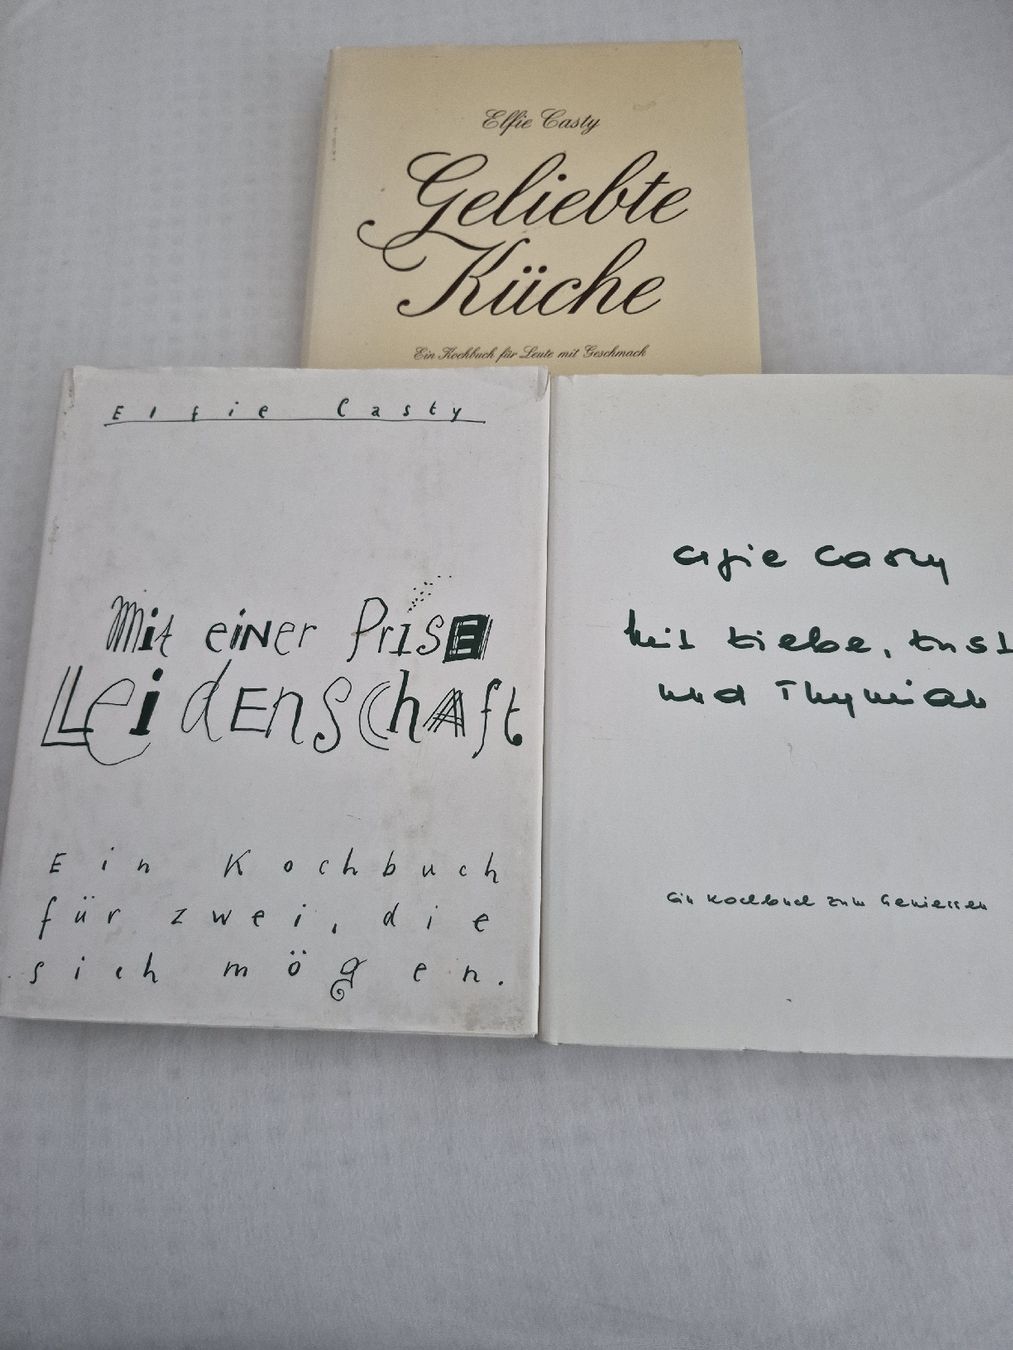 Elfie Casty
Geliebte
Küche
Ein Kochbuch für Leute mit Geschmack
Elfie Casty
Mit einer Prise
Leidenschaft
Ein Kochbuch
für zwei, die
sich mögen.
elfie casty
Mit Liebe, Lust
und Thymian
ein Kochbuch zum Geniessen